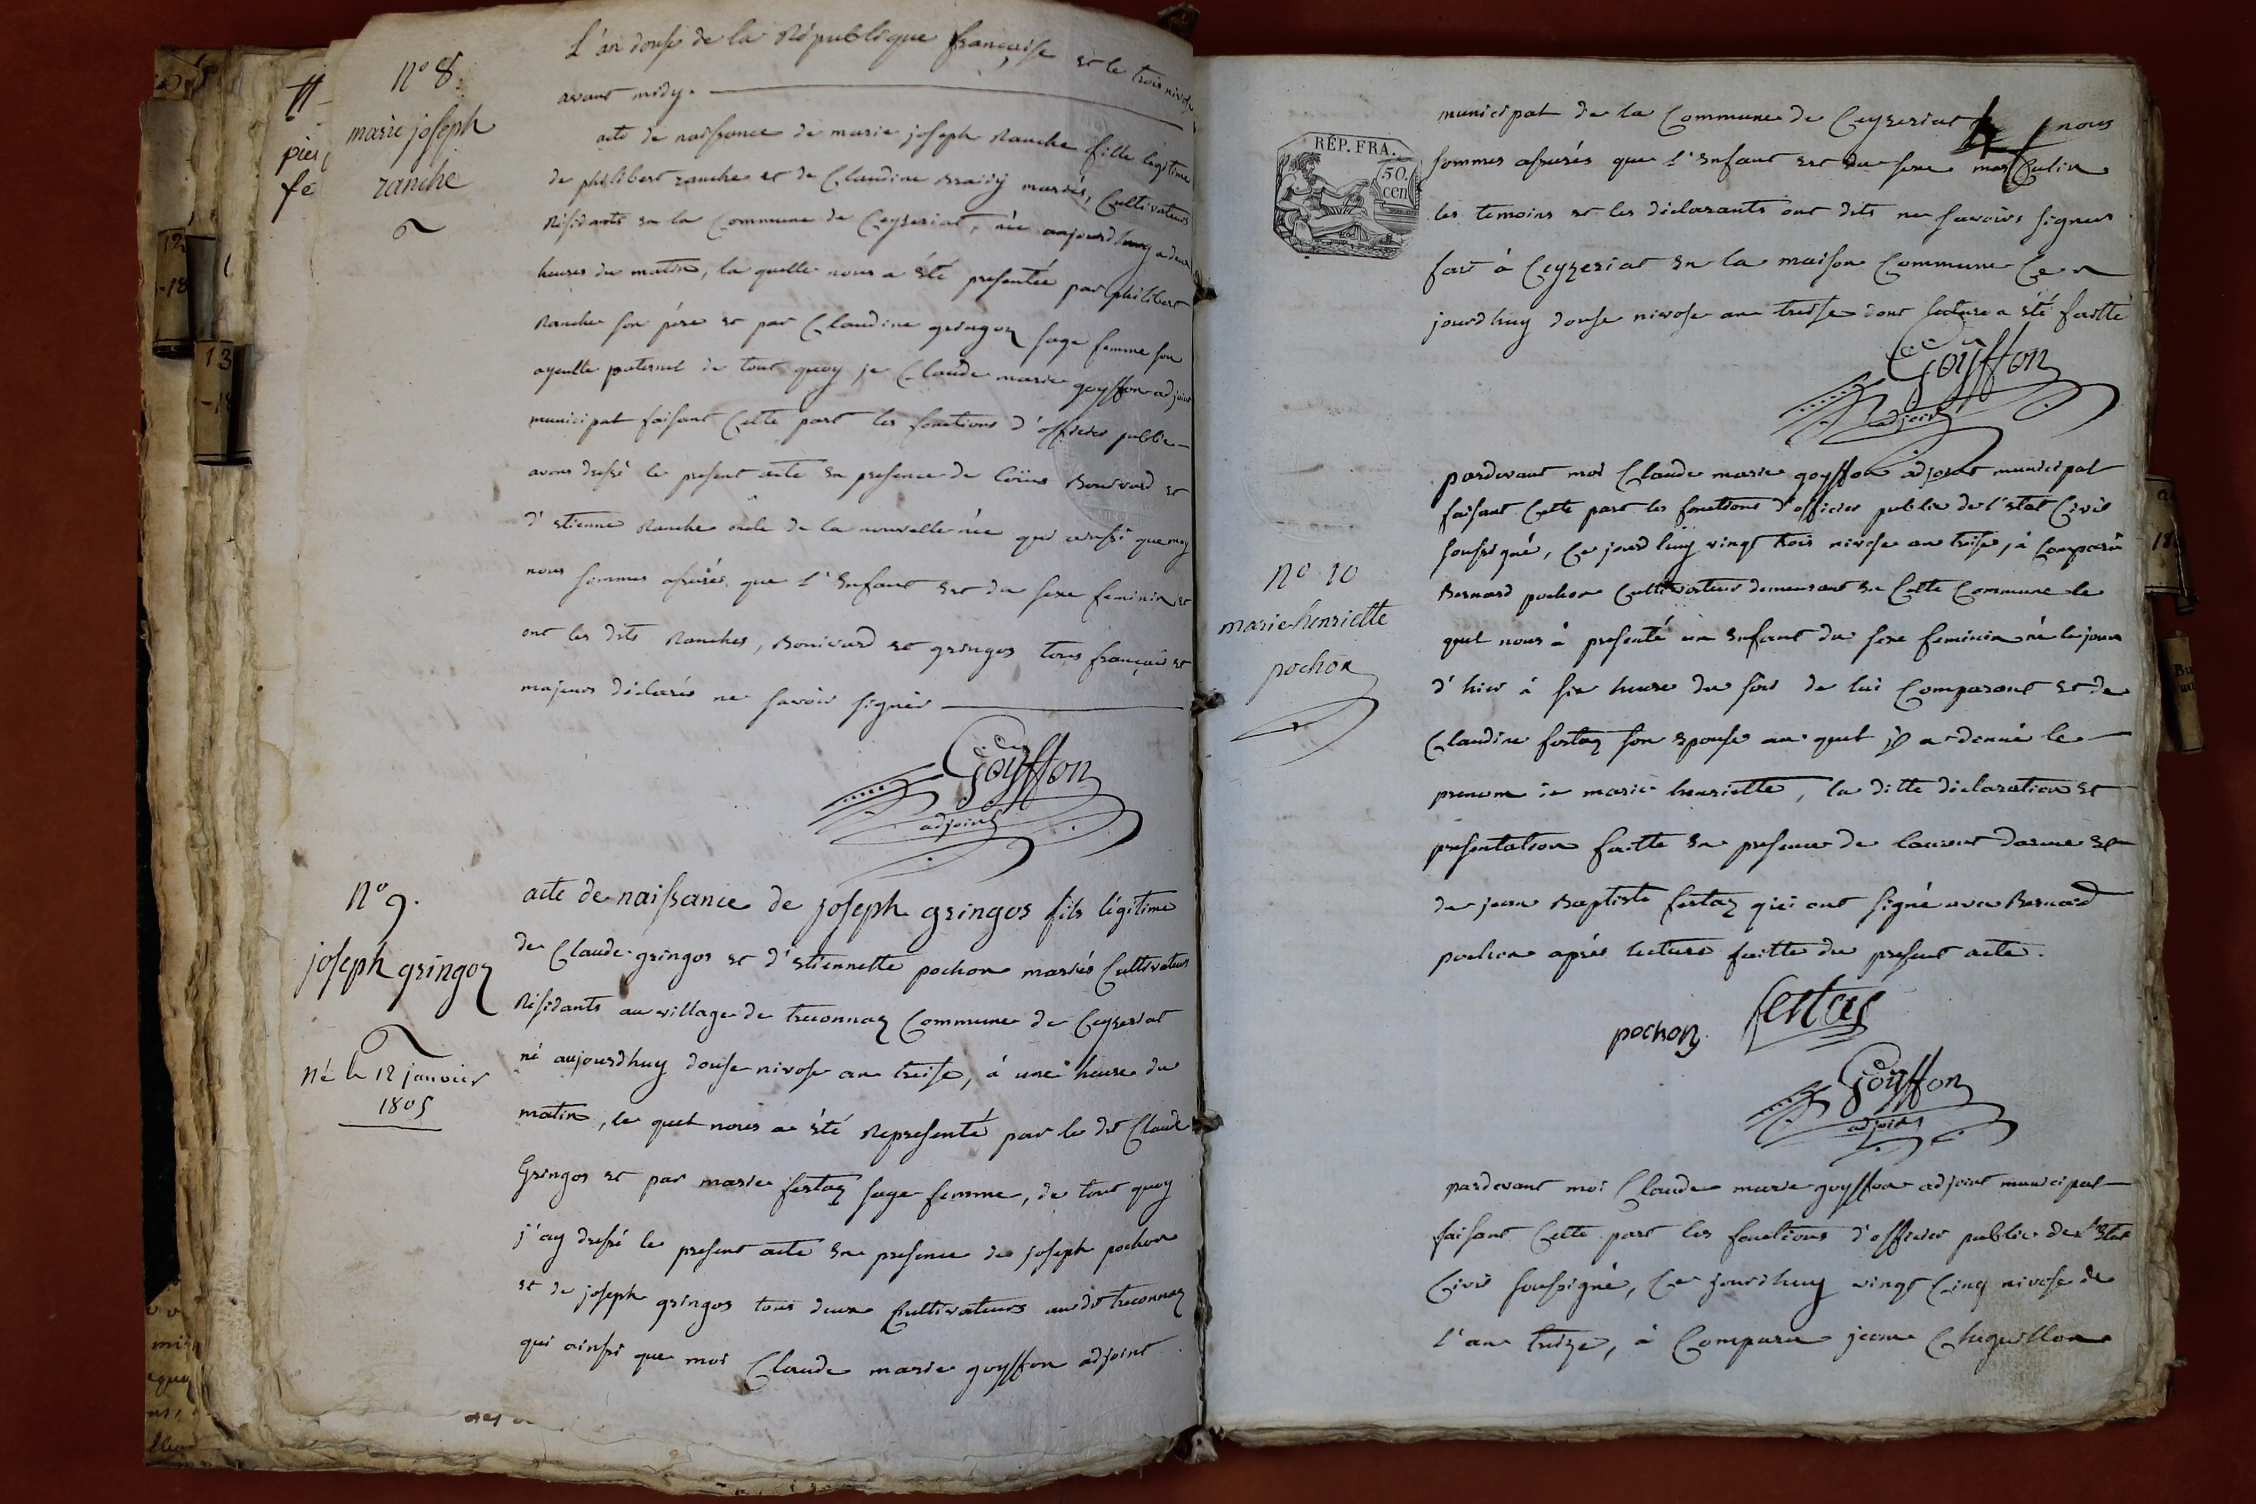 N° 8.
marie joseph
ranche
L'an douse de la République française et le trois nivose
avant midy.
acte de naissance de marie joseph Ranche fille légitime
de philibert ranche et de Claudine mariés, Cultivateurs
Résidants en la Commune de Ceyzeriat, née aujourdhuy a deux
heures du matin, la quelle nous a été presentée par philibert
Ranche son pére et par Claudine gringoz sage femme son
ayeulle paternel de tout quoy je Claude marie goyffon adjoint
municipal faisant Cette part les fonctions d'officier public
avons dressé le present acte en presence de Bouvard et
d'etienne Ranche oncle de la nouvelle née qui ainsi que moy
nous sommes assurés que l'Enfant est du sexe feminin et
ont les dits Ranches, Bouvard et gringos tous français et
majeurs déclarés ne savoir signer
Goÿffon
adjoint
N° 9.
joseph gringoz
Né le 12 janvier
1805
acte de naissance de joseph gringos fils légitime
de Claude gringos et d'etiennette pochon mariés Cultivateurs
Résidants au village de treconnaz Commune de Ceyzeriat
né aujourdhuy douse nivose an treise, à une heure du
matin, le quel nous a été Representé par le dit Claude
Gringos et par marie festaz sage femme, de tout quoy
j'ay dressé le present acte en presence de joseph pochon
et de joseph gringos tous deux Cultivateurs au dit treconnaz
qui ainsi que moi Claude marie goyffon adjoint
municipal de la Commune de Ceyzeriat nous
sommes assurés que l'Enfant est du sexe masculin
les temoins et les déclarants ont dits ne savoirs signer
fait à Ceyzeriat en la maison Commune Ce
jourdhuy douse nivose an treise dont lecture a été faitte
Goÿffon
adjoint
RÉP. FRA.
50
cen
N° 10
marie-henriette
pochon
pardevant moi Claude marie goyffon adjoint municipal
faisant Cette part les fonctions d'officier public de l'etat Civil
soussigné, Ce jourdhuy vingt trois nivose an treise, à Comparu
Bernard pochon Cultivateur demeurant en Cette Commune le
quel nous à presenté un enfant du sexe feminin né le jour
d'hier à six heure du soir de lui Comparant et de
Claudine festaz son epouse au quel il a donné le
prenom de marie henriette, la ditte déclaration et
presentation faitte en presence de laurent darme et
de jean Baptiste festaz qui ont signé avec Bernard
pochon aprés lecture faitte du present acte.
pochon
festas
Goÿffon
adjoint
pardevant moi Claude marie goyffon adjoint municipal
faisant Cette part les fonctions d'officier public de l'etat
Civil soussigné, Ce jourdhuy vingt Cinq nivose de
l'an treize, à Comparu jean Chiguillon